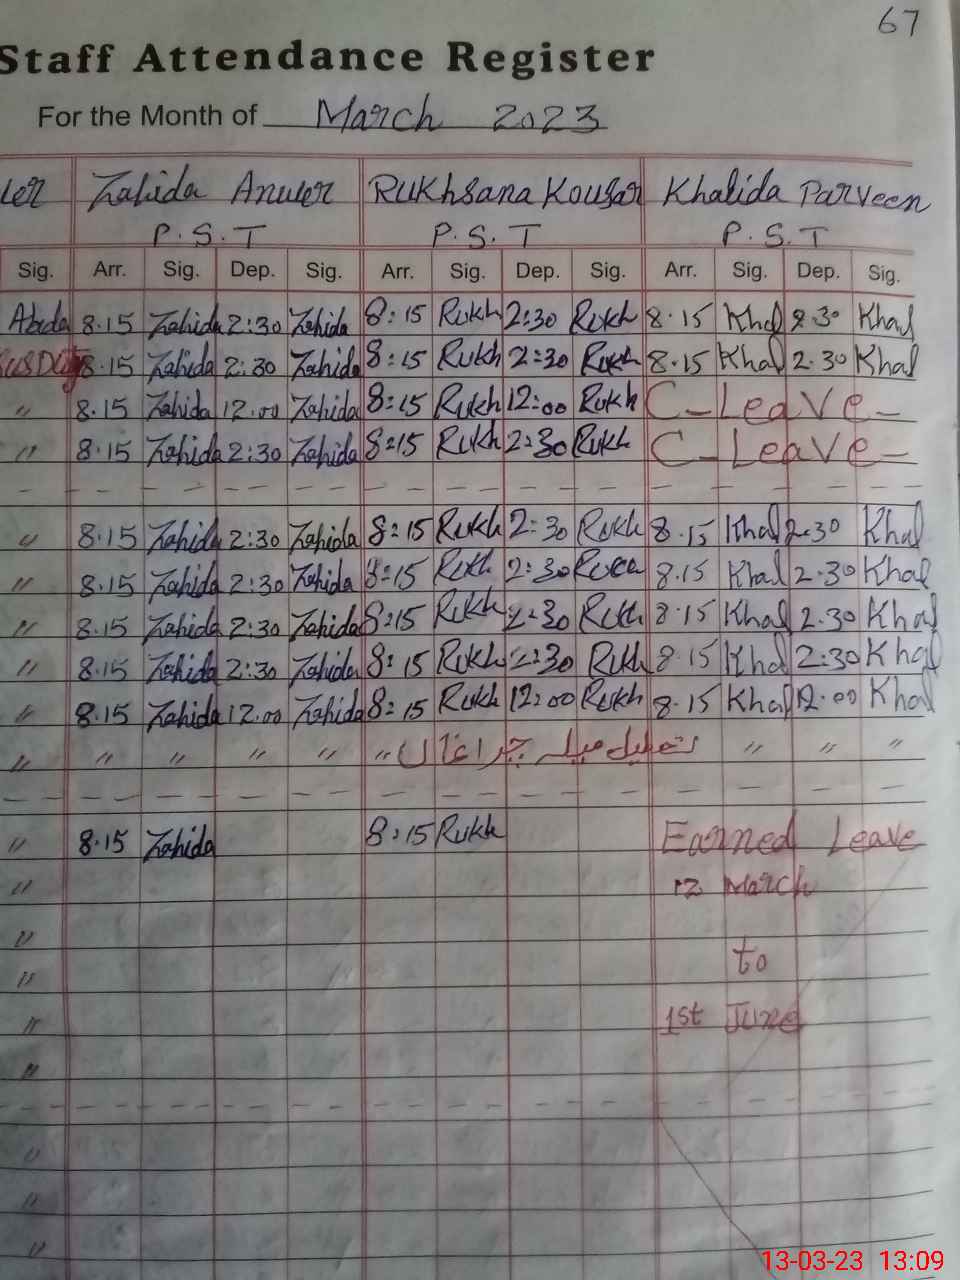 67
Staff Attendance Register
For the Month of March 2023
Zahida Anwer Rukhsana Kousar Khalida Parveen
P.S.T P.S.T P.S.T
Sig. Arr. Sig. Dep. Sig. Arr. Sig. Dep. Sig. Arr. Sig. Dep. Sig.
Abida 8.15 Zahida 2:30 Zahida 8:15 Rukh 2:30 Rukh 8.15 Khal 2.30 Khal
8.15 Zahida 2:30 Zahida 8:15 Rukh 2:30 Rukh 8.15 Khal 2.30 Khal
" 8.15 Zahida 12.00 Zahida 8:15 Rukh 12:00 Rukh C-Leave-
" 8.15 Zahida 2:30 Zahida 8:15 Rukh 2:30 Rukh C-Leave-
" 8.15 Zahida 2:30 Zahida 8:15 Rukh 2:30 Rukh 8.15 Khal 2.30 Khal
" 8.15 Zahida 2:30 Zahida 8:15 Rukh 2:30 8.15 Khal 2.30 Khal
" 8.15 Zahida 2:30 Zahida 8:15 Rukh 2:30 Rukh 8.15 Khal 2.30 Khal
" 8.15 Zahida 2:30 Zahida 8:15 Rukh 2:30 Rukh 8.15 Khal 2:30 Khal
" 8.15 Zahida 12.00 Zahida 8:15 Rukh 12:00 Rukh 8.15 Khal 12.00 Khal
" " " " " " تعطیل میلہ چراغاں " " "
" 8.15 Zahida 8:15 Rukh Earned Leave
" 12 March
"
" to
" 1st June
"
"
"
"
13-03-23 13:09